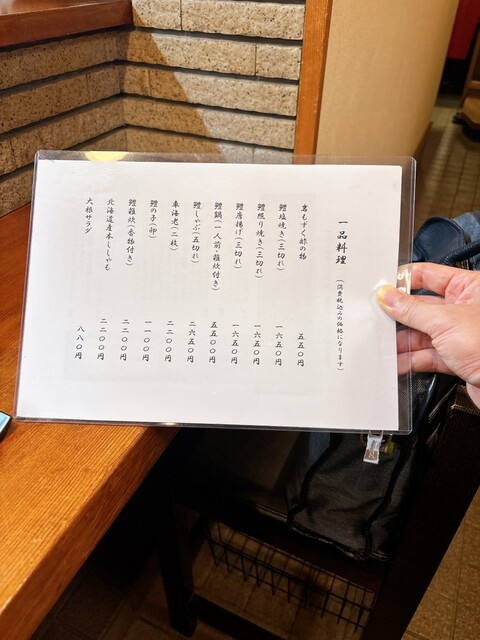 一品料理 (消費税込みの価格になります)
岩もずく酢の物 五五〇円
鱧塩焼き(三切れ) 一六五〇円
鱧照り焼き(三切れ) 一六五〇円
鱧唐揚げ(三切れ) 一六五〇円
鱧鍋(一人前・雑炊付き) 五五〇〇円
鱧しゃぶ(五切れ) 二六五〇円
車海老(二枚) 二二〇〇円
鱧の子(卵) 一一〇〇円
鱧雑炊(香物付き) 二二〇〇円
北海道産本ししゃも 二二〇〇円
大根サラダ 八八〇円